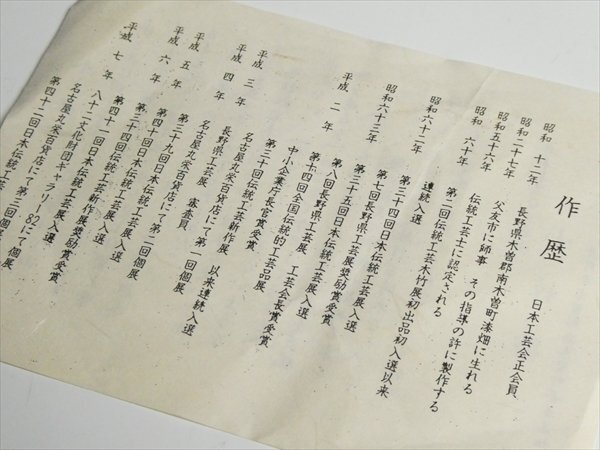 作歴
日本工芸会正会員
昭和 十二年 長野県木曽郡南木曽町漆畑に生れる
昭和二十七年 父友市に師事 その指導の許に製作する
昭和五十六年 伝統工芸士に認定される
昭和 六十年 第二回伝統工芸木竹展初出品初入選以来
連続入選
昭和六十二年 第三十四回日本伝統工芸展入選
昭和六十三年 第七回長野県工芸展奨励賞受賞
第三十五回日本伝統工芸展入選
平成 二 年 第八回長野県工芸展 工芸会長賞受賞
第十四回全国伝統的工芸品展
中小企業庁長官賞受賞
平成 三 年 第三十回伝統工芸新作展 以来連続入選
長野県工芸展 審査員
平成 四 年 名古屋丸栄百貨店にて第一回個展
平成 五 年 第三十九回日本伝統工芸展入選
平成 六 年 第四十回日本伝統工芸展入選
名古屋丸栄百貨店にて第二回個展
第三十四回伝統工芸新作展奨励賞受賞
第四十一回日本伝統工芸展入選
平成 七 年 八十二文化財団ギャラリー82にて個展
名古屋丸栄百貨店にて第三回個展
第四十二回日本伝統工芸展入選